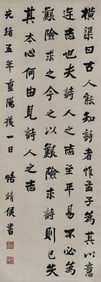 橫渠曰古人能知詩者惟孟子為其以意
逆志也夫詩人之志至平易不必為
艱險求之今以艱險求詩則已失
其本心何由見詩人之志
光緒五年重陽後一日